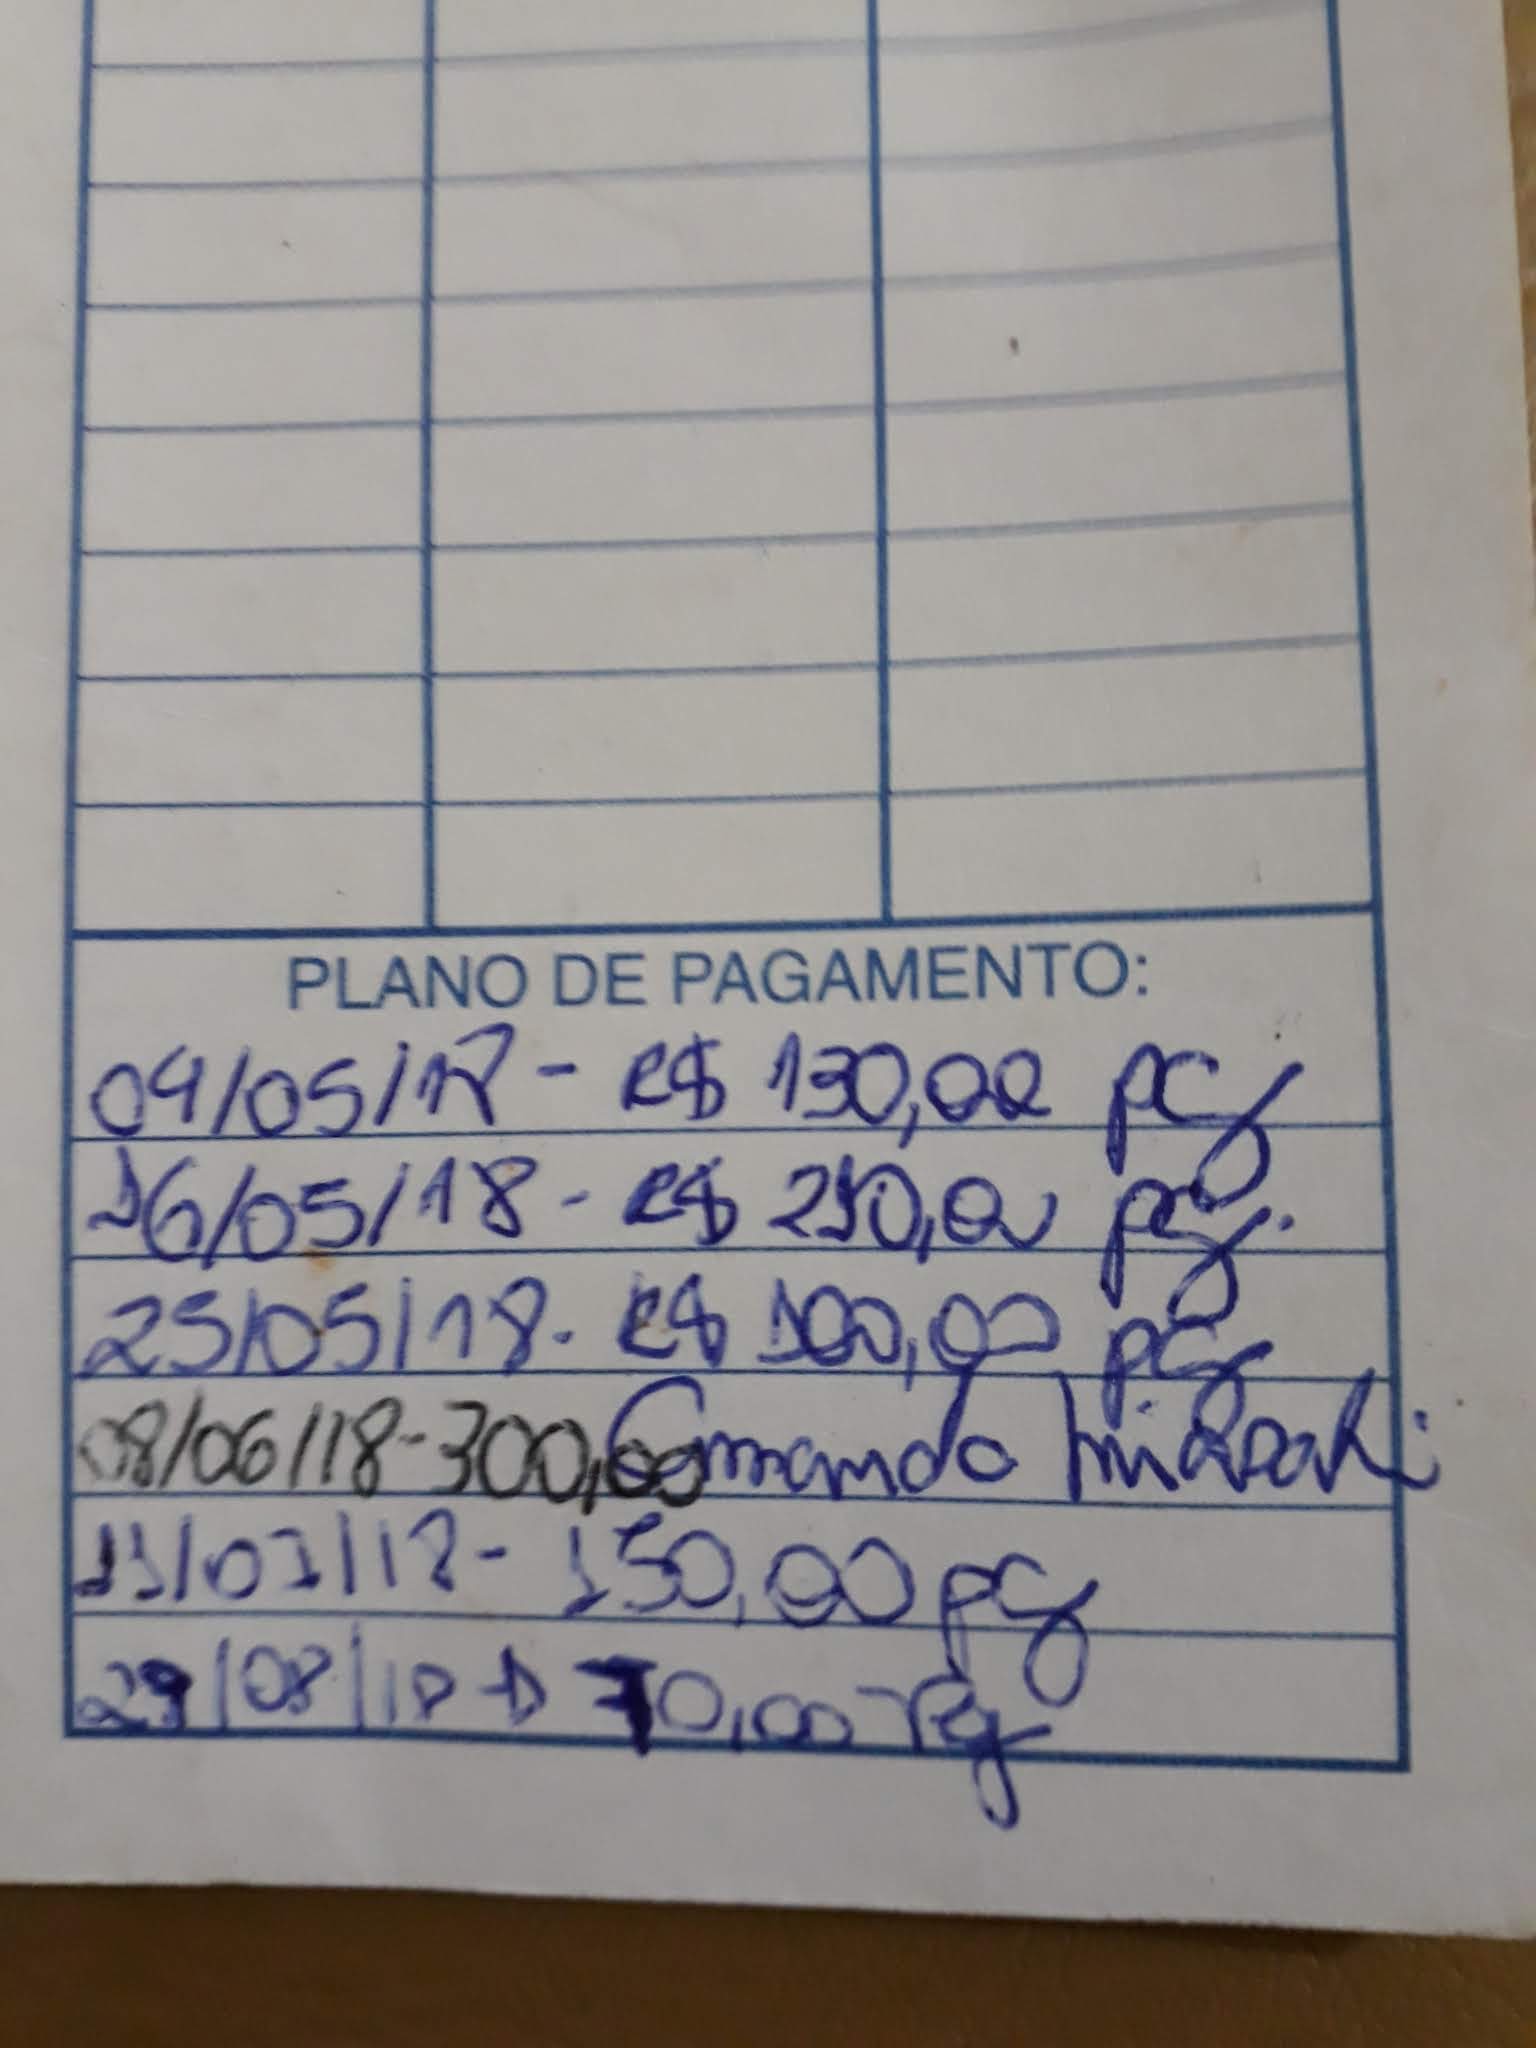 PLANO DE PAGAMENTO:
04/05/18 - R$ 130,00 pg
16/05/18 - R$ 250,00 pg.
25/05/18. R$ 100,00 pg
08/06/18-300,00
11/07/18- 150,00 pg
29/08/18 → 70,00 - Pg